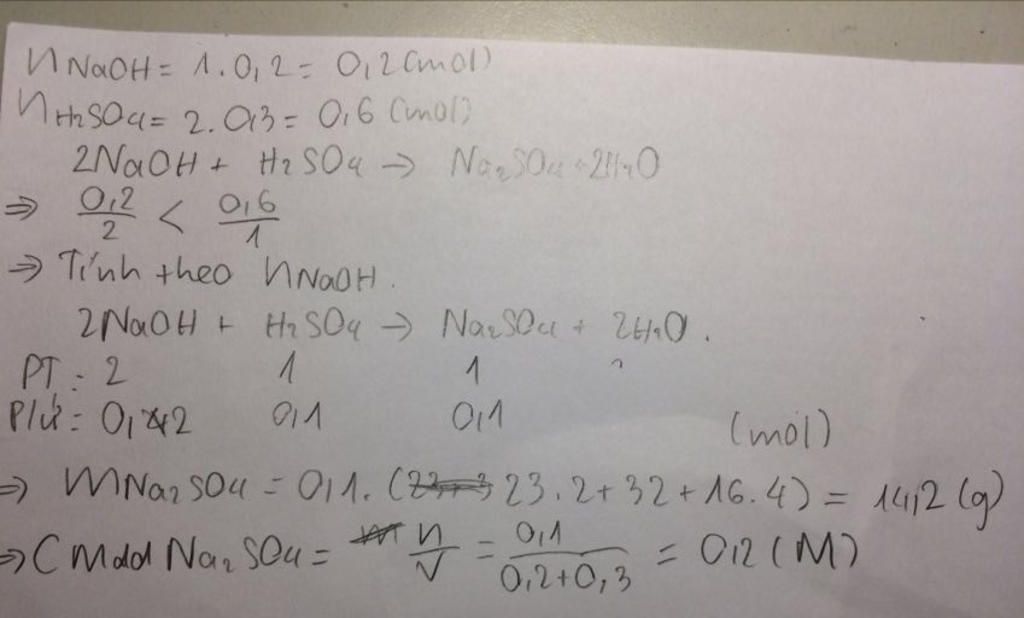 nNaOH = 1.0,2 = 0,2 (mol)
nH2SO4 = 2.0,3 = 0,6 (mol)
2NaOH + H2SO4 → Na2SO4 + 2H2O
⇒ 0,2/2 < 0,6/1
⇒ Tính theo nNaOH.
2NaOH + H2SO4 → Na2SO4 + 2H2O.
PT: 2 1 1
P/ứ: 0,2 0,1 0,1 (mol)
⇒ mNa2SO4 = 0,1.(23.2+32+16.4) = 14,2 (g)
⇒ CMdd Na2SO4 = n/V = 0,1/0,2+0,3 = 0,2 (M)